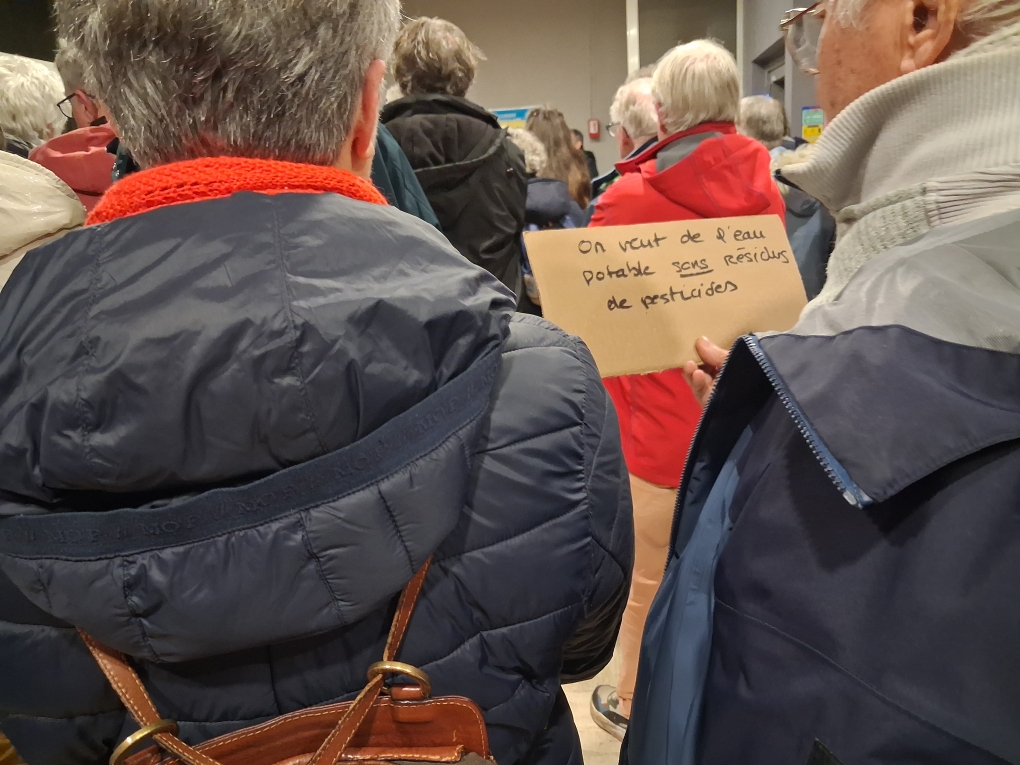 On veut de l'eau
potable sans résidus
de pesticides